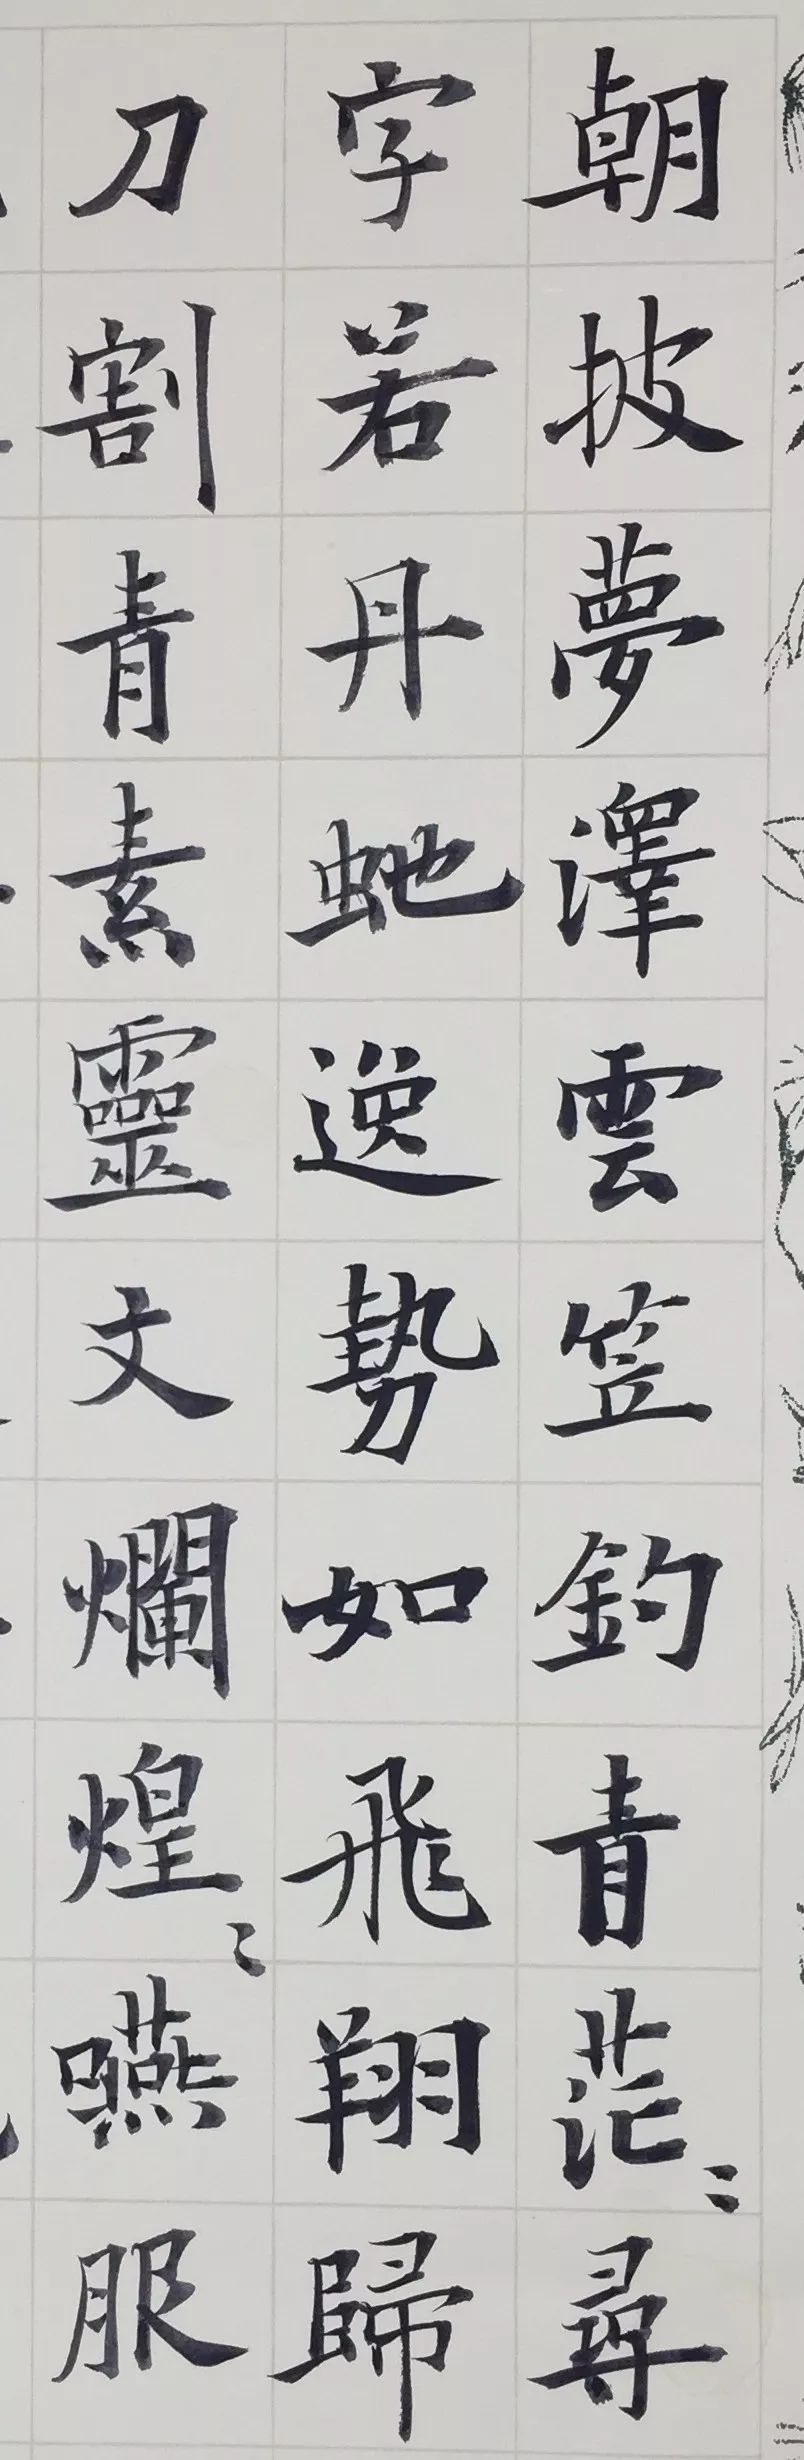 朝披夢澤雲笠釣青茫〻尋
字若丹虵逸勢如飛翔歸
刀割青素靈文爛煌〻嚥服